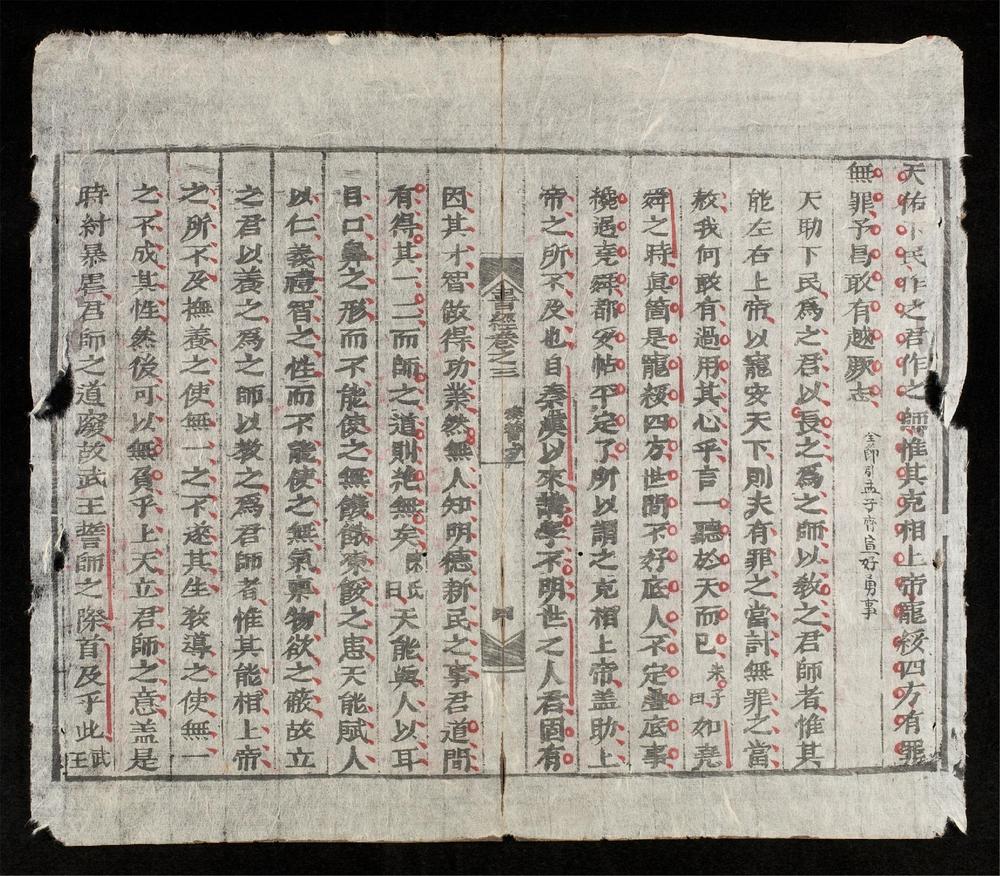 天佑下民作之君作之師惟其克相上帝寵綏四方有罪
無罪予曷敢有越厥志
全節引孟子齊宣好勇事
天助下民爲之君以長之爲之師以敎之君師者惟其
能左右上帝以寵安天下則夫有罪之當討無罪之當
赦我何敢有過用其心乎言一聽於天而已朱子曰如堯
舜之時眞箇是寵綏四方世間不好底人不定疊底事
纔遇堯舜都安帖平定了所以謂之克相上帝盖助上
帝之所不及也自秦漢以來講學不明世之人君固有
書經卷之三
因其才智做得功業然無人知明德新民之事君道間
有得其一二而師之道則絶無矣陳氏曰天能與人以耳
目口鼻之形而不能使之無饑餓凍餒之患天能賦人
以仁義禮智之性而不能使之無氣稟物欲之蔽故立
之君以養之爲之師以敎之爲君師者惟其能相上帝
之所不及撫養之使無一之不遂其生敎導之使無一
之不成其性然後可以無負乎上天立君師之意盖是
時紂暴虐君師之道廢故武王誓師之際首及乎此武王